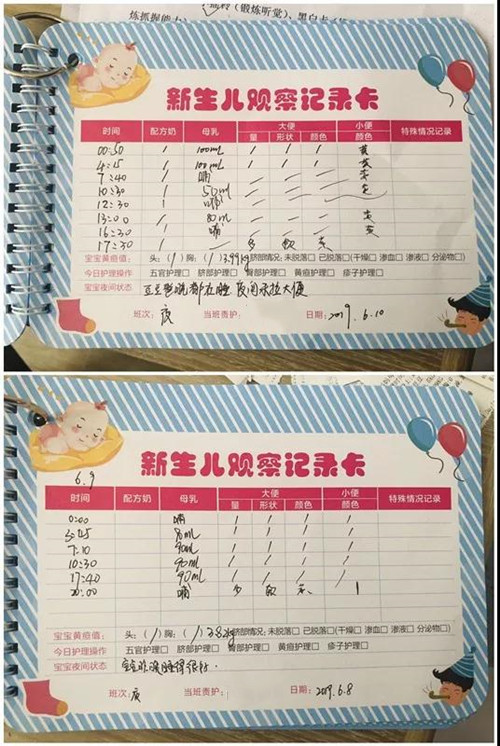 炼抓握能力
(锻炼听觉)、黑白卡
新生儿观察记录卡
时间 配方奶 母乳 大便 小便 特殊情况记录
量 形状 颜色 颜色
00:50 / 100mL / / / 黄
4:15 / 100mL / / / 黄
7:40 / 哺
10:30 / 50ml
12:30 / 哺
13:00 / 80ml
16:30 / 哺
17:30 / 多 软
宝宝黄疸值: 头:(/)胸:(/)3.99kg 脐部情况:未脱落□ 已脱落□(干燥□ 渗血□ 渗液□ 分泌物□)
今日护理操作 五官护理□ 脐部护理□ 臀部护理□ 黄疸护理□ 疹子护理□
宝宝夜间状态 都在睡 夜间未拉大便
班次:夜 当班责护: 日期:2019.6.10
6.9
新生儿观察记录卡
时间 配方奶 母乳 大便 小便 特殊情况记录
量 形状 颜色 颜色
0:00 哺 / / / /
3:45 80mL / / / /
7:10 90mL / / / /
10:30 90mL / / / /
17:40 90mL / / / /
20:00 哺 多 软
宝宝黄疸值: 头:(/)胸:(/)3.82kg 脐部情况:未脱落□ 已脱落□(干燥□ 渗血□ 渗液□ 分泌物□)
今日护理操作 五官护理□ 脐部护理□ 臀部护理□ 黄疸护理□ 疹子护理□
宝宝夜间状态 宝宝昨夜睡得很好.
班次:夜 当班责护: 日期:2019.6.8